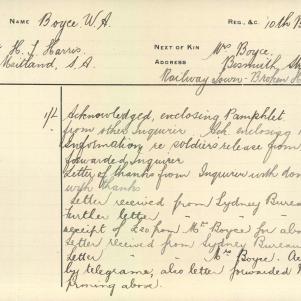 NAME Boyce. W. A. REG., &C. 10th B
H. J. Harris. NEXT OF KIN Mrs Boyce.
Maitland, S.A. ADDRESS Bismuth
Railway Town - Broken H
Acknowledged, enclosing Pamphlet
from other Inquirer. Ack. enclosing
Information re soldiers release from
forwarded inquirer
Letter of thanks from Inquirer with don
with thanks
Letter received from Sydney Bureau
Further letter " " "
receipt of £20 from Mrs Boyce for abo
Letter received from Sydney Bureau
Letter " Mrs Boyce. Ac
by telegrams; also letter forwarded
above.